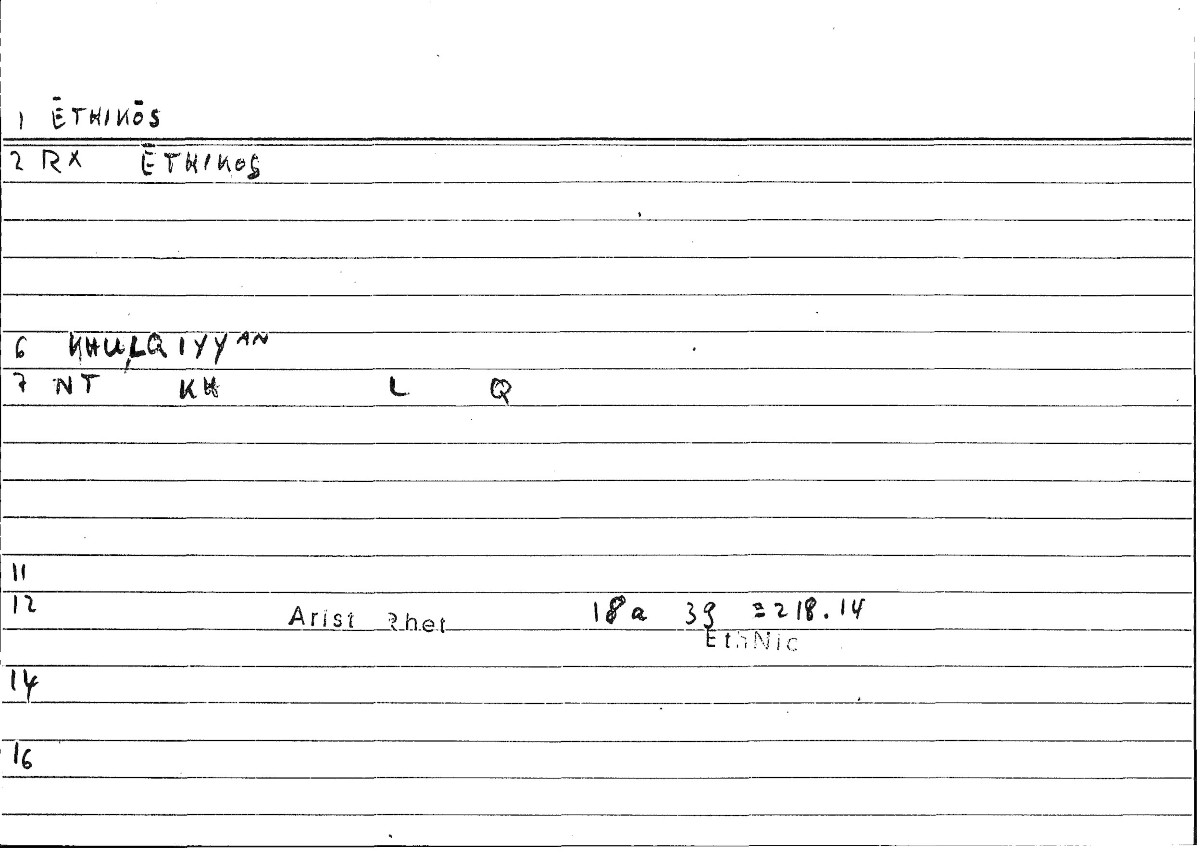 1 ĒTHIKŌS
2 RX ĒTHIKOS
6 KHULQIYYAN
7 NT KH L Q
11
12 Arist Rhet 18a 39 =218.14
EthNic
14
16